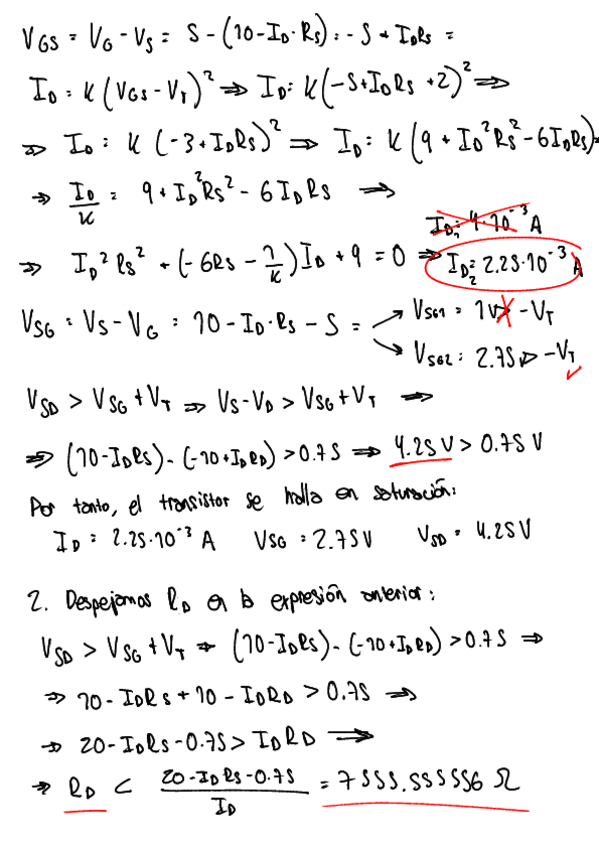 V_GS = V_G - V_S = 5 - (10 - I_D·R_S) = -5 + I_D R_S =
I_D = K (V_GS - V_T)² ⇒ I_D = K(-5 + I_D R_S + 2)² ⇒
⇒ I_D = K (-3 + I_D R_S)² ⇒ I_D = K (9 + I_D² R_S² - 6 I_D R_S) ⇒
⇒ I_D/K = 9 + I_D² R_S² - 6 I_D R_S ⇒
I_D1 = 4·10⁻³ A
⇒ I_D² R_S² + (-6R_S - 1/K) I_D + 9 = 0 ⇒ I_D2 = 2.25·10⁻³ A
V_SG = V_S - V_G = 10 - I_D·R_S - 5 = → V_SG1 = 1V > -V_T
→ V_SG2 = 2.75V > -V_T ✓
V_SD > V_SG + V_T ⇒ V_S - V_D > V_SG + V_T ⇒
⇒ (10 - I_D R_S) - (-10 + I_D R_D) > 0.75 ⇒ 4.25 V > 0.75 V
Por tanto, el transistor se halla en saturación:
I_D = 2.25·10⁻³ A V_SG = 2.75V V_SD = 4.25V
2. Despejamos R_D en la expresión anterior:
V_SD > V_SG + V_T ⇒ (10 - I_D R_S) - (-10 + I_D R_D) > 0.75 ⇒
⇒ 10 - I_D R_S + 10 - I_D R_D > 0.75 ⇒
⇒ 20 - I_D R_S - 0.75 > I_D R_D ⇒
⇒ R_D < (20 - I_D R_S - 0.75)/I_D = 7555.555556 Ω